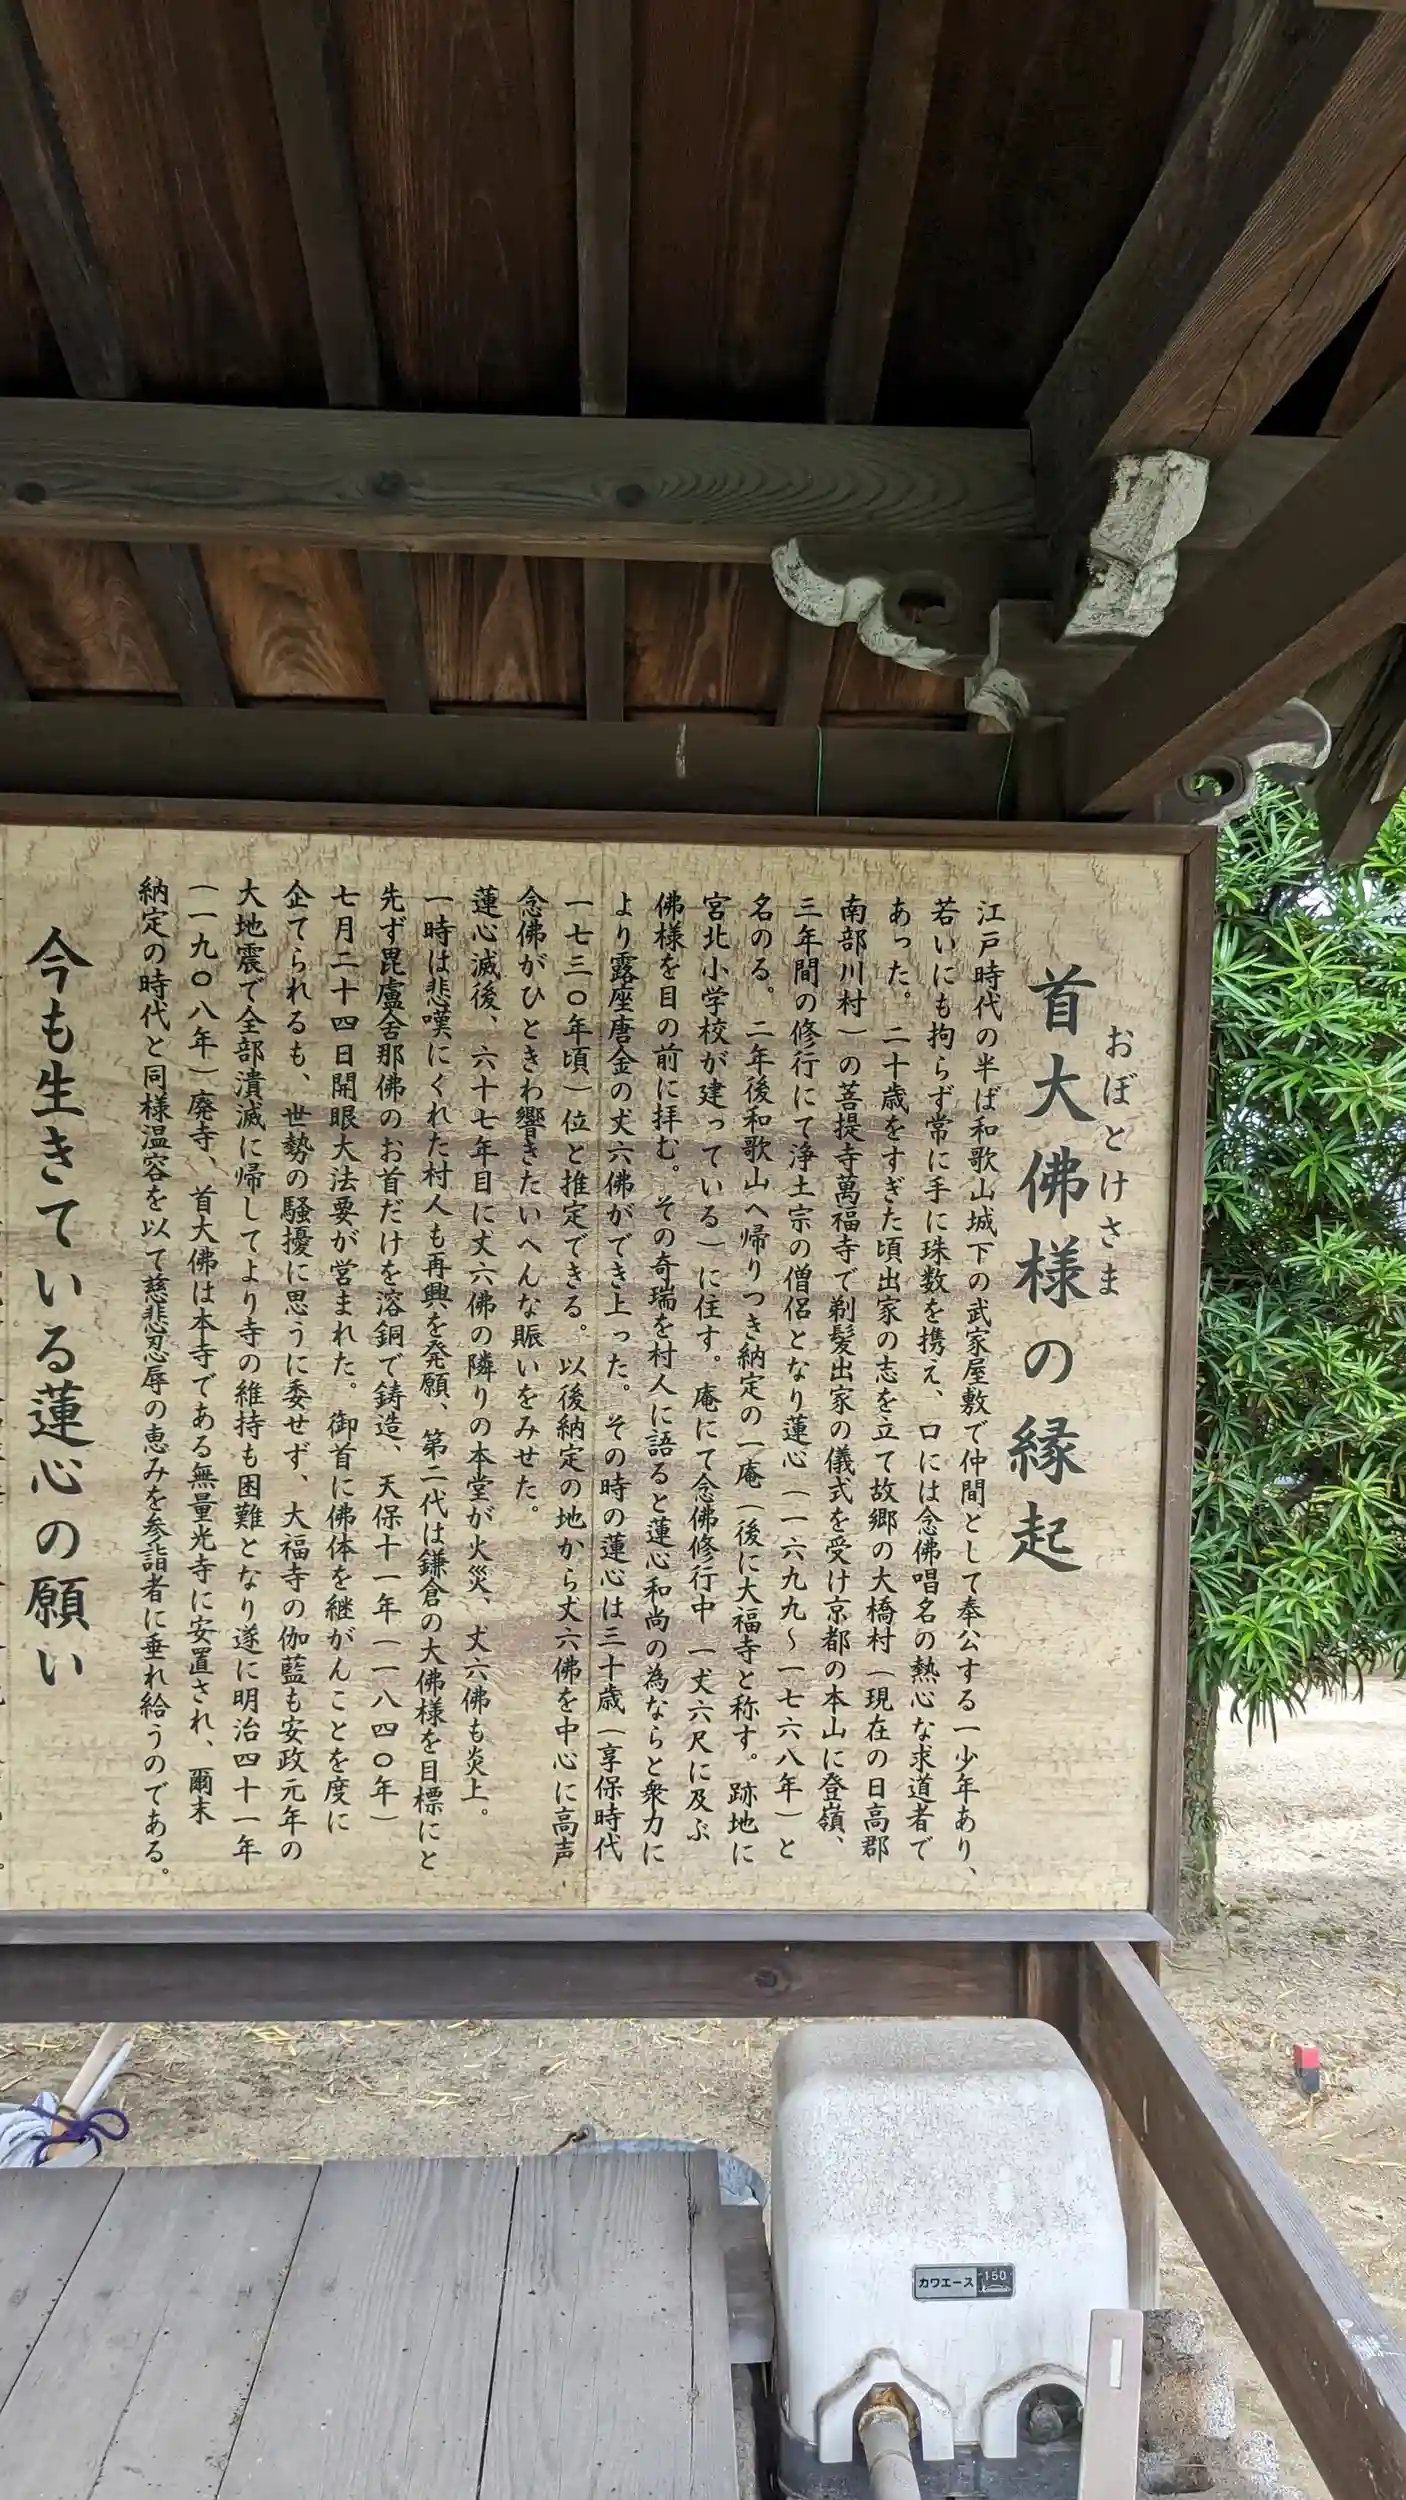 おぼとけさま
首大佛様の縁起
江戸時代の半ば和歌山城下の武家屋敷で仲間として奉公する一少年あり、
若いにも拘らず常に手に珠数を携え、口には念佛唱名の熱心な求道者で
あった。二十歳をすぎた頃出家の志を立て故郷の大橋村(現在の日高郡
南部川村)の菩提寺萬福寺で剃髪出家の儀式を受け京都の本山に登嶺、
三年間の修行にて浄土宗の僧侶となり蓮心(一六九九〜一七六八年)と
名のる。二年後和歌山へ帰りつき納定の一庵(後に大福寺と称す。跡地に
宮北小学校が建っている)に住す。庵にて念佛修行中一丈六尺に及ぶ
佛様を目の前に拝む。その奇瑞を村人に語ると蓮心和尚の為ならと衆力に
より露座唐金の丈六佛ができ上った。その時の蓮心は三十歳(享保時代
一七三〇年頃)位と推定できる。以後納定の地から丈六佛を中心に高声
念佛がひときわ響きたいへんな賑いをみせた。
蓮心滅後、六十七年目に丈六佛の隣りの本堂が火災、丈六佛も炎上。
一時は悲嘆にくれた村人も再興を発願、第二代は鎌倉の大佛様を目標にと
先ず毘盧舍那佛のお首だけを溶銅で鋳造、天保十一年(一八四〇年)
七月二十四日開眼大法要が営まれた。御首に佛体を継がんことを度に
企てられるも、世勢の騒擾に思うに委せず、大福寺の伽藍も安政元年の
大地震で全部潰滅に帰してより寺の維持も困難となり遂に明治四十一年
(一九〇八年)廃寺、首大佛は本寺である無量光寺に安置され、爾末
納定の時代と同様温容を以て慈悲忍辱の恵みを参詣者に垂れ給うのである。
今も生きている蓮心の願い
カワエース 150